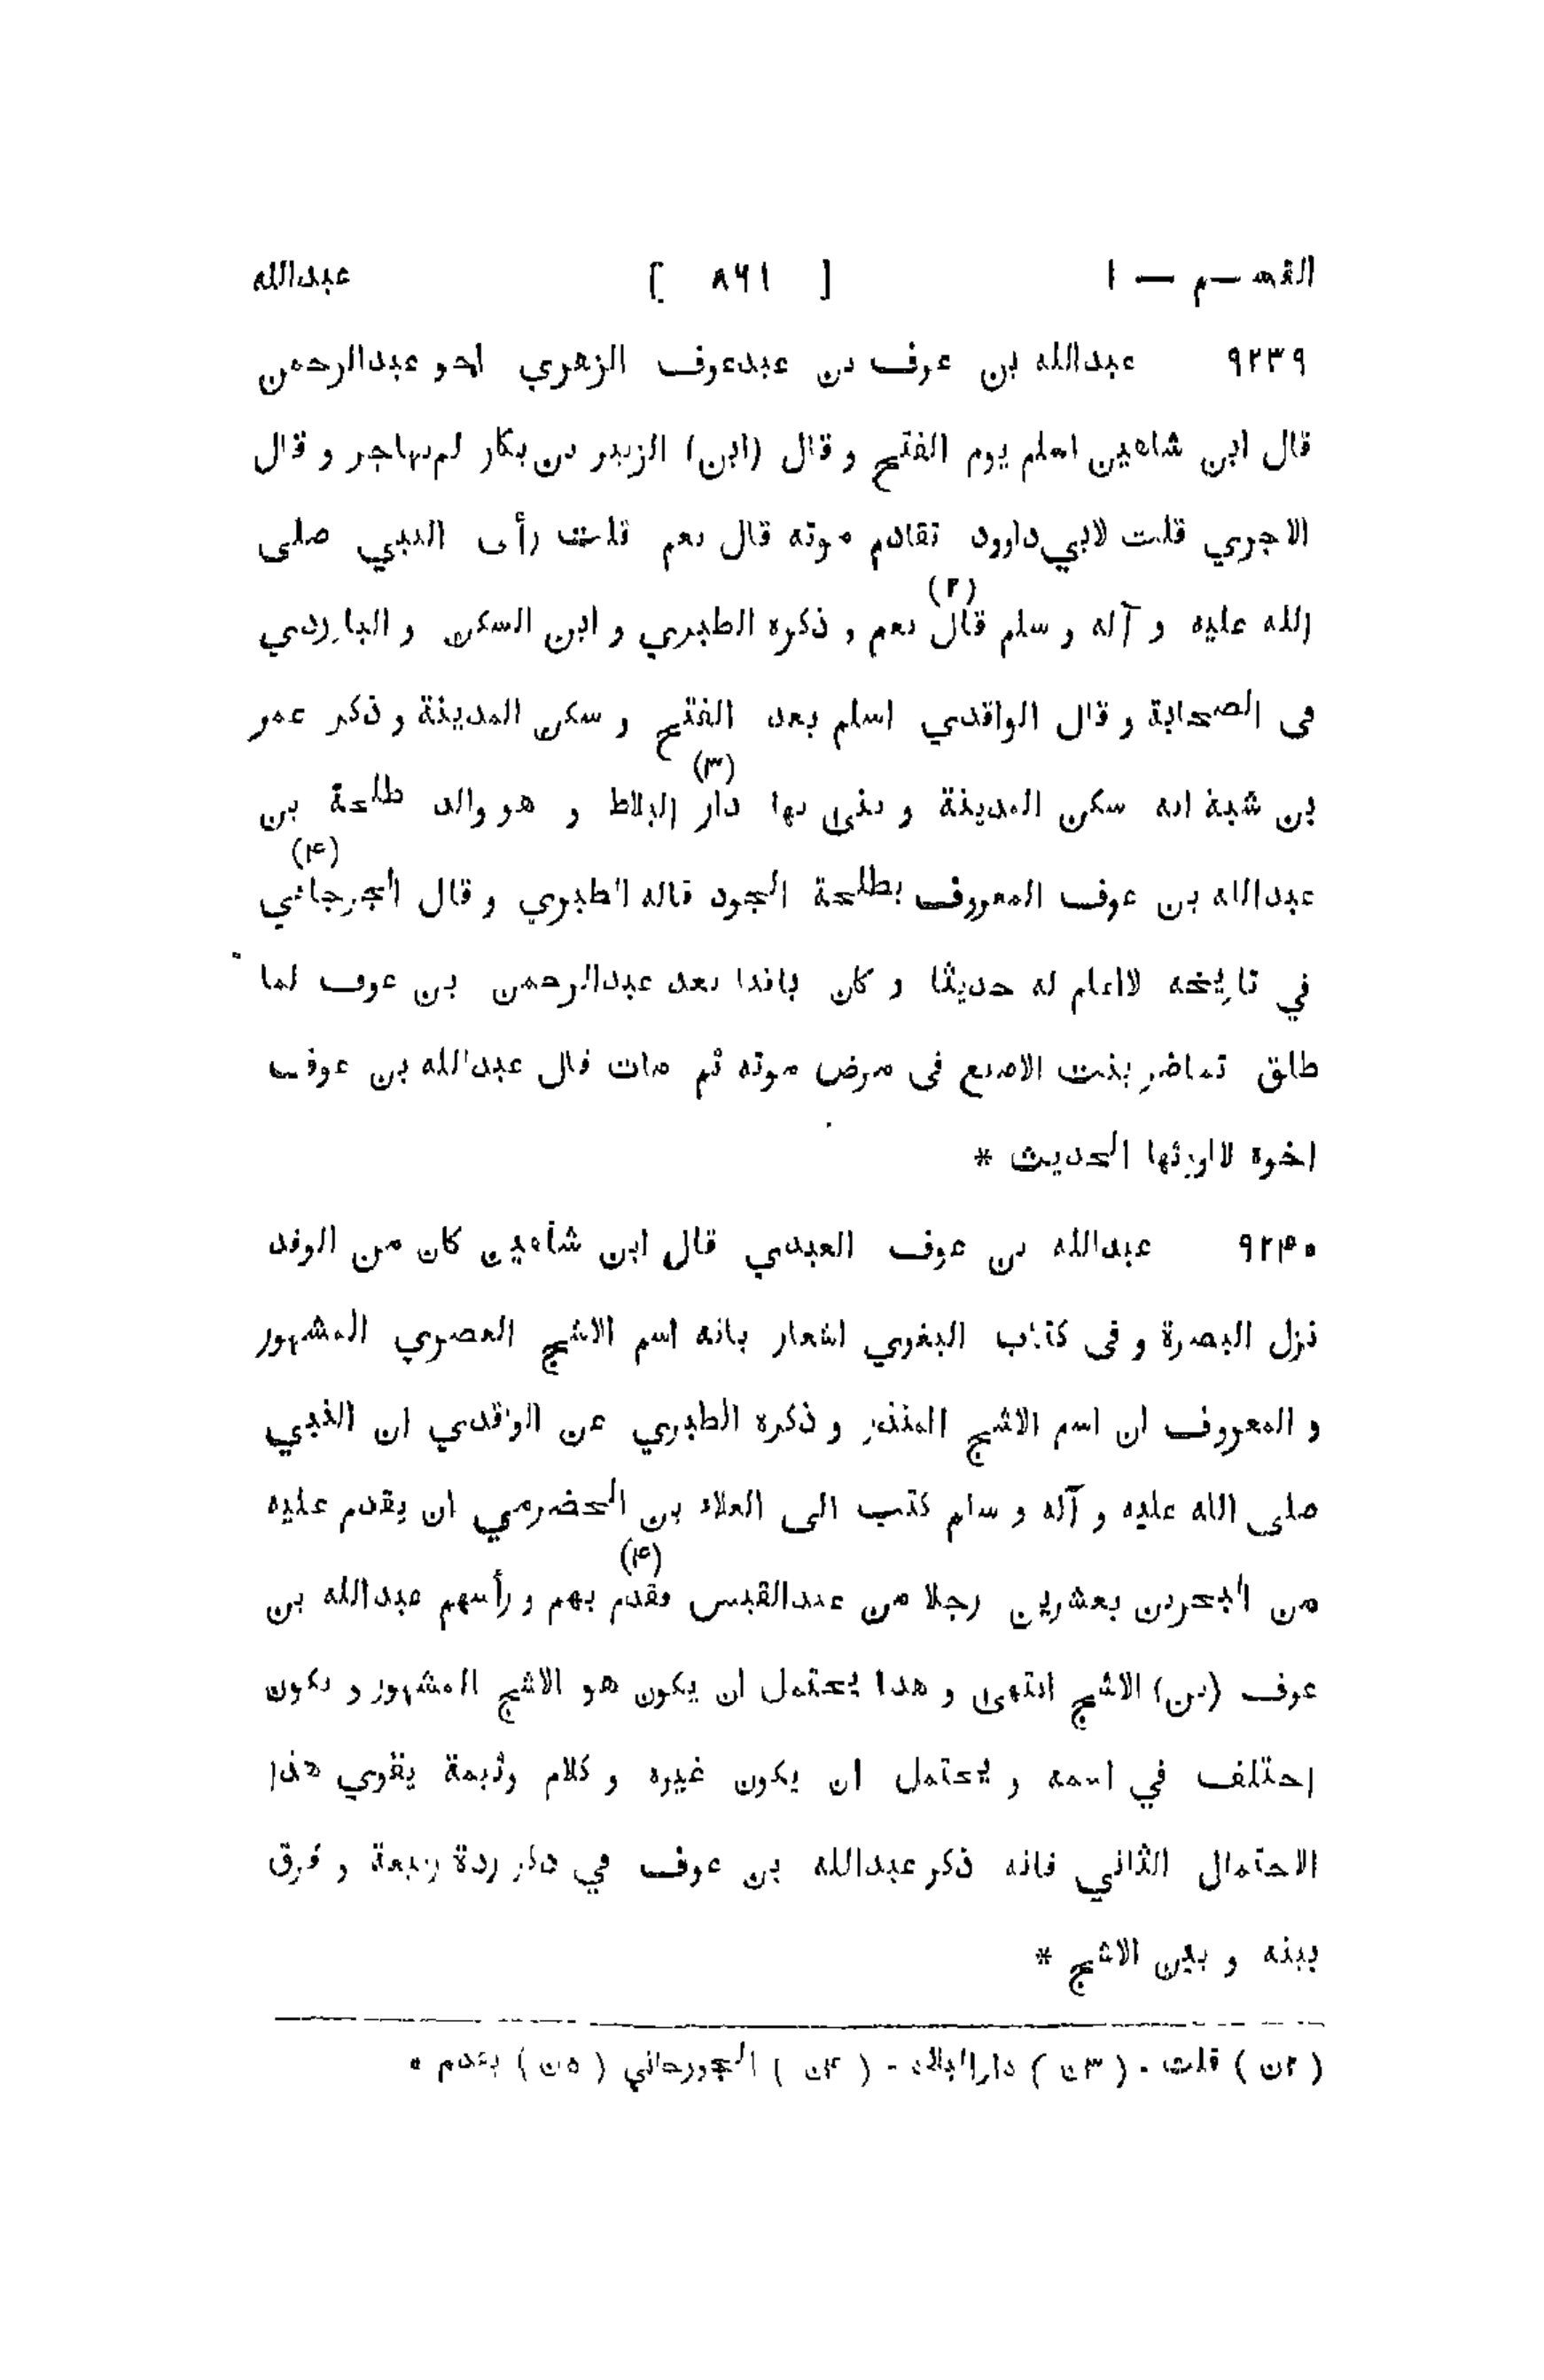 القسم — ١ [ ٨٦١ ] عبدالله
٩٢٣٩ عبدالله بن عوف بن عبدعوف الزهري اخو عبدالرحمن
قال ابن شاهين اسلم يوم الفتح و قال (ابن) الزبير بن بكار لم يهاجر و قال
الاجري قلت لابي داوود تقادم موته قال نعم قلت رأى النبي صلى
الله عليه و آله و سلم قال (٢) نعم و ذكره الطبري و ابن السكن و الباوردي
في الصحابة و قال الواقدي اسلم بعد الفتح و سكن المدينة و ذكر عمر
بن شبة انه سكن المدينة و بنى بها دار (٣) البلاط و هو والد طلحة بن
عبدالله بن عوف المعروف بطلحة الجود قاله الطبري و قال الجرجاني (٤)
في تاريخه لااعلم له حديثا و كان باقدا بعد عبدالرحمن بن عوف لما
طلق تماضر بنت الاصبع في مرض موته ثم مات قال عبدالله بن عوف
اخوه لااورثها الحديث *
٩٢٤٠ عبدالله بن عوف العبدي قال ابن شاهين كان من الوفد
نزل البصرة و في كتاب البغوي اشعار بانه اسم الاشج العصري المشهور
و المعروف ان اسم الاشج المنذر و ذكره الطبري عن الواقدي ان النبي
صلى الله عليه و آله و سلم كتب الى العلاء بن الحضرمي ان يقدم عليه
من البحرين بعشرين رجلا من عبدالقيس فقدم (٤) بهم و رأسهم عبدالله بن
عوف (بن) الاشج انتهى و هذا يحتمل ان يكون هو الاشج المشهور و يكون
اختلف في اسمه و يحتمل ان يكون غيره و كلام وثيمة يقوي هذا
الاحتمال الثاني فانه ذكر عبدالله بن عوف في ذكر ردة ربيعة و فرق
بينه و بين الاشج *
( ٢ن ) قلت - ( ٣ن ) دارالبلاد - ( ٤ن ) الجورجاني ( ٥ن ) يقدم *